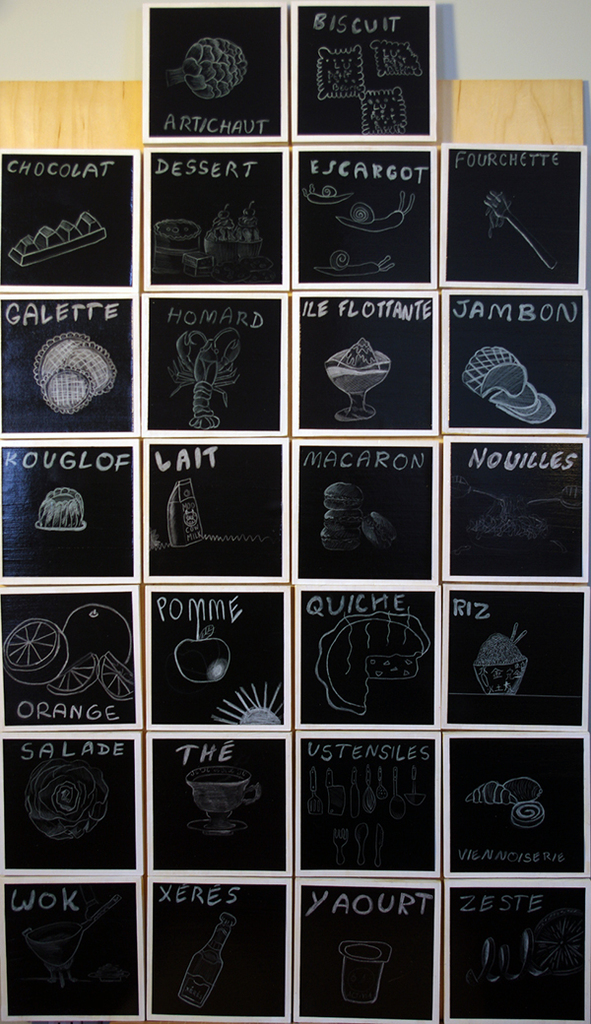 ARTICHAUT
BISCUIT
LU
LU
CHOCOLAT
DESSERT
ESCARGOT
FOURCHETTE
GALETTE
HOMARD
ILE FLOTTANTE
JAMBON
KOUGLOF
LAIT
MILK
MACARON
NOUILLES
ORANGE
POMME
QUICHE
RIZ
SALADE
THÉ
USTENSILES
VIENNOISERIE
WOK
XÉRÉS
YAOURT
ZESTE